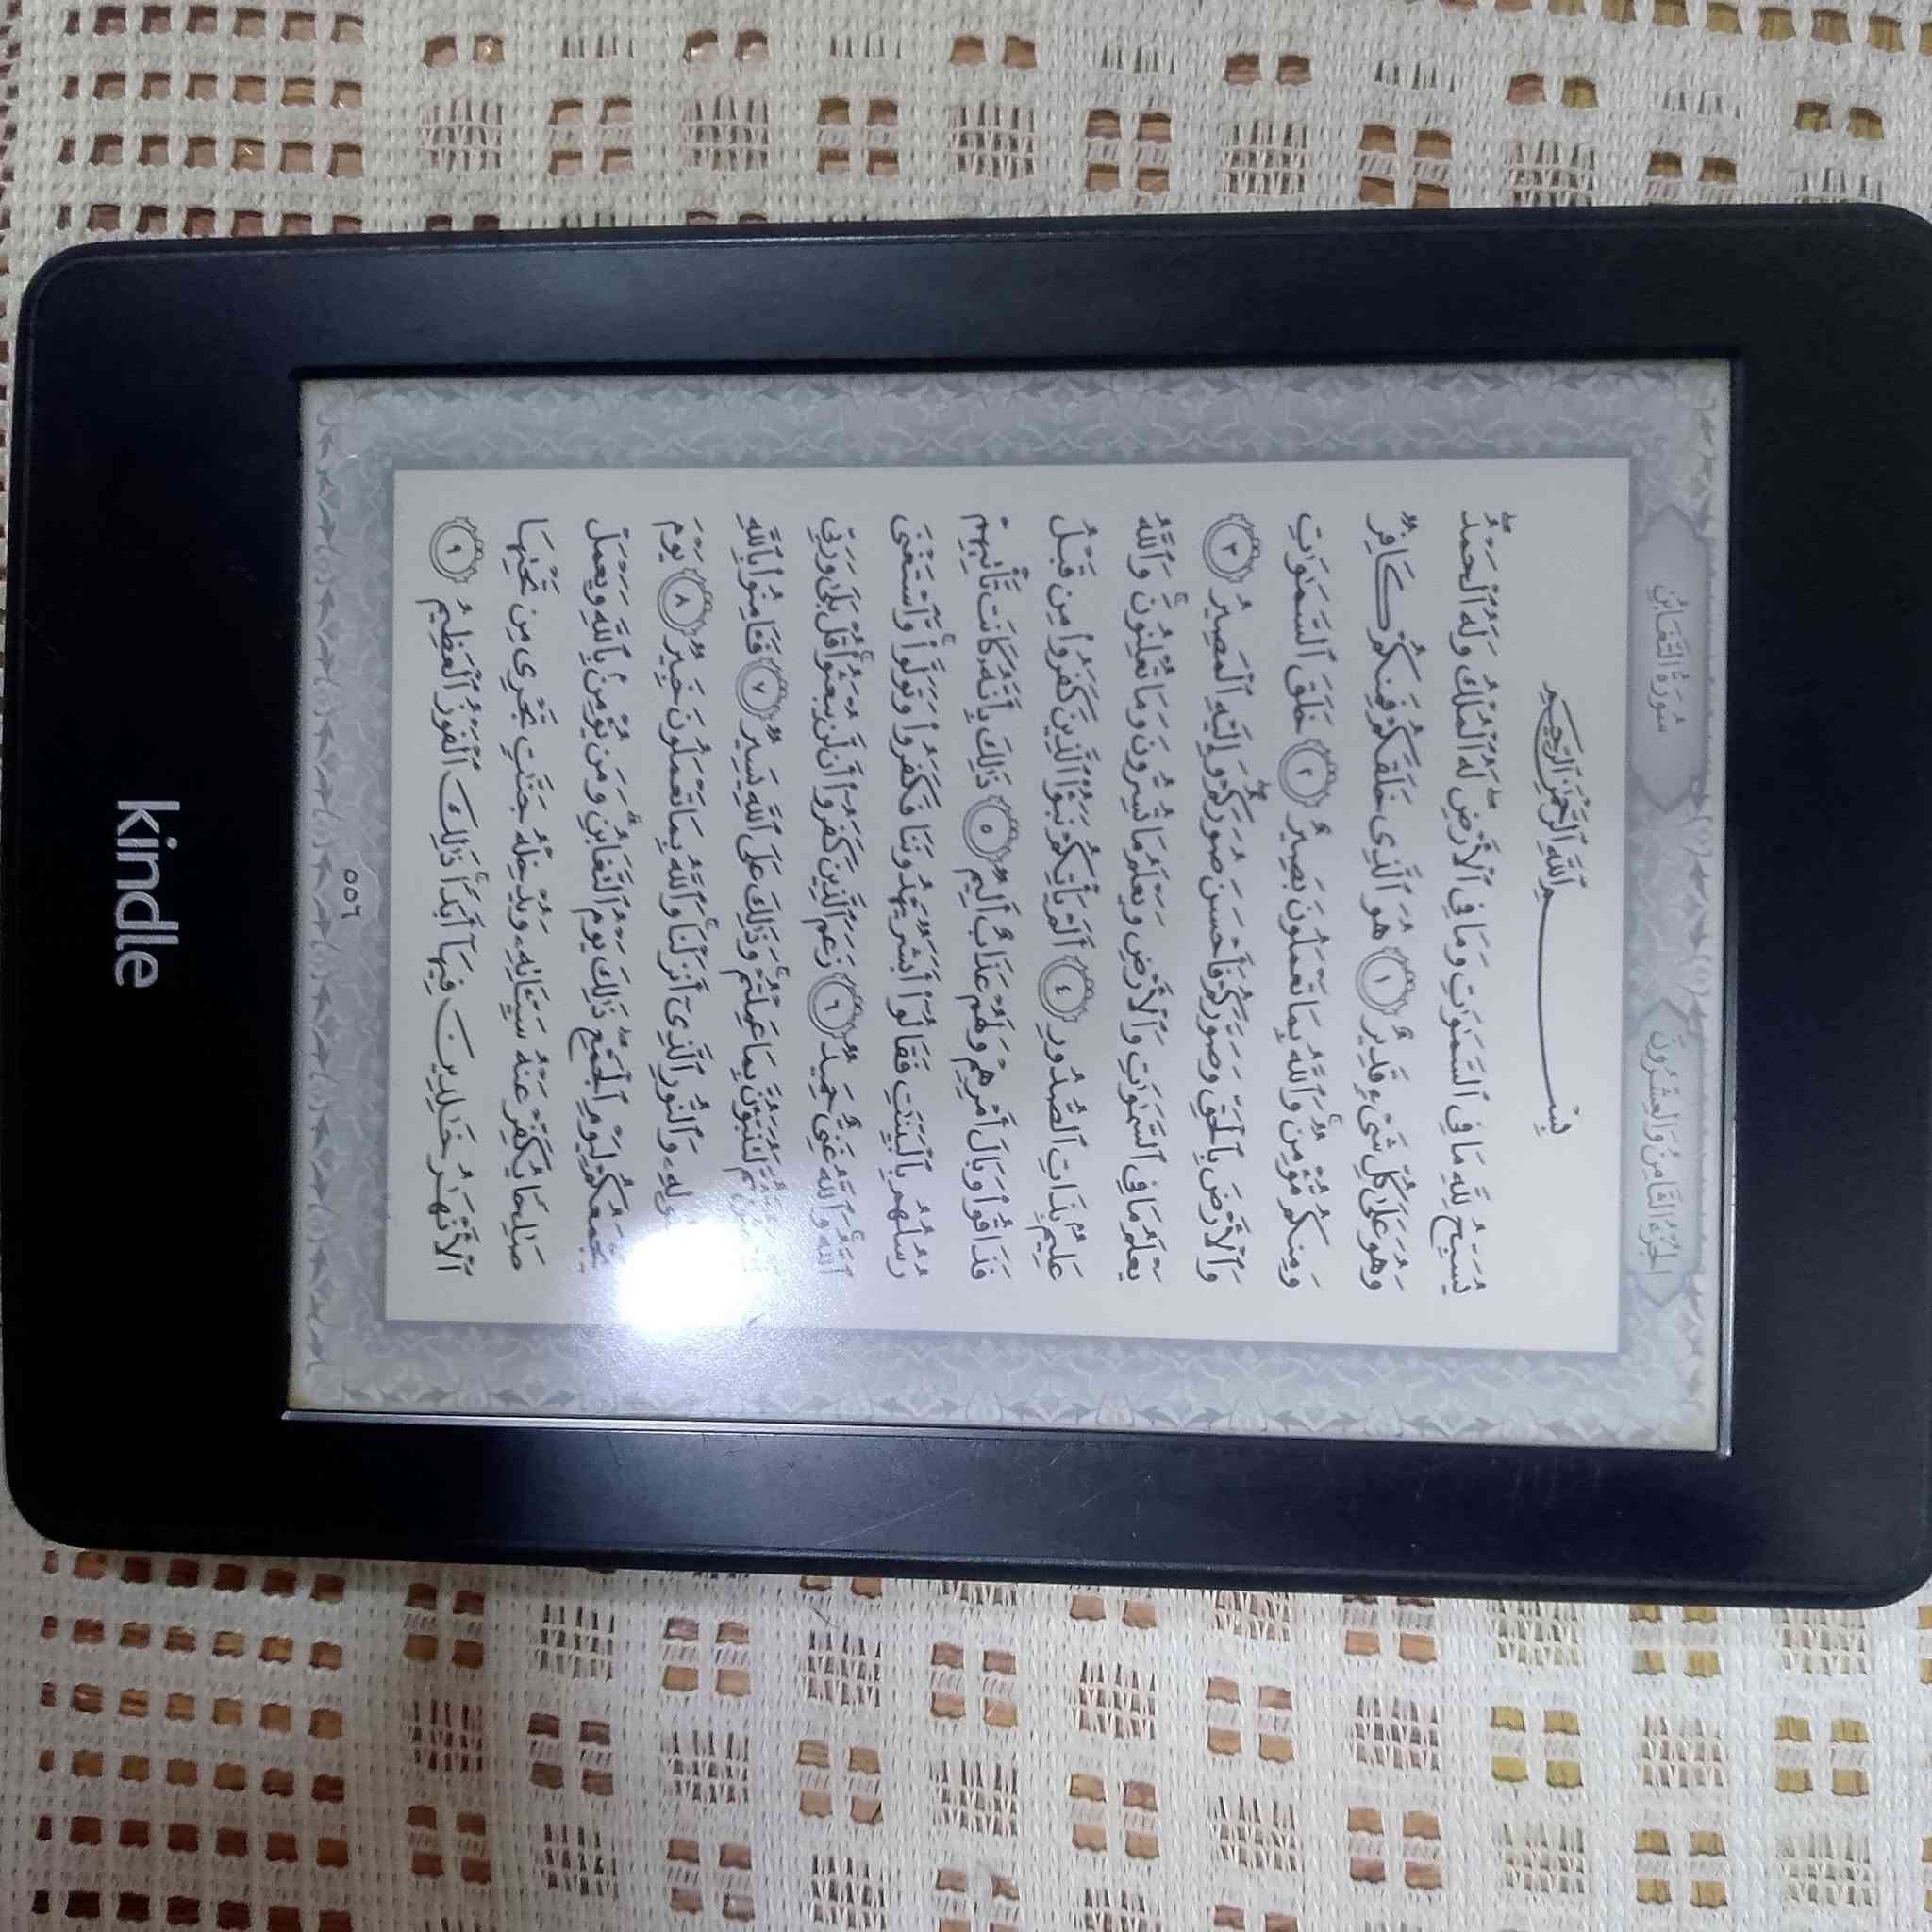 الجُزْءُ الثَّامِنُ وَالعِشْرُونَ سُورَةُ التَّغَابُنِ
بِسْمِ ٱللَّهِ ٱلرَّحْمَٰنِ ٱلرَّحِيمِ
يُسَبِّحُ لِلَّهِ مَا فِي ٱلسَّمَٰوَٰتِ وَمَا فِي ٱلْأَرْضِۖ لَهُ ٱلْمُلْكُ وَلَهُ ٱلْحَمْدُۖ
وَهُوَ عَلَىٰ كُلِّ شَيْءٍ قَدِيرٌ ١ هُوَ ٱلَّذِي خَلَقَكُمْ فَمِنكُمْ كَافِرٌ
وَمِنكُم مُّؤْمِنٌۚ وَٱللَّهُ بِمَا تَعْمَلُونَ بَصِيرٌ ٢ خَلَقَ ٱلسَّمَٰوَٰتِ
وَٱلْأَرْضَ بِٱلْحَقِّ وَصَوَّرَكُمْ فَأَحْسَنَ صُوَرَكُمْۖ وَإِلَيْهِ ٱلْمَصِيرُ ٣
يَعْلَمُ مَا فِي ٱلسَّمَٰوَٰتِ وَٱلْأَرْضِ وَيَعْلَمُ مَا تُسِرُّونَ وَمَا تُعْلِنُونَۚ وَٱللَّهُ
عَلِيمٌۢ بِذَاتِ ٱلصُّدُورِ ٤ أَلَمْ يَأْتِكُمْ نَبَؤُاْ ٱلَّذِينَ كَفَرُواْ مِن قَبْلُ
فَذَاقُواْ وَبَالَ أَمْرِهِمْ وَلَهُمْ عَذَابٌ أَلِيمٌ ٥ ذَٰلِكَ بِأَنَّهُۥ كَانَت تَّأْتِيهِمْ
رُسُلُهُم بِٱلْبَيِّنَٰتِ فَقَالُوٓاْ أَبَشَرٌ يَهْدُونَنَا فَكَفَرُواْ وَتَوَلَّواْۚ وَّٱسْتَغْنَى
ٱللَّهُۚ وَٱللَّهُ غَنِيٌّ حَمِيدٌ ٦ زَعَمَ ٱلَّذِينَ كَفَرُوٓاْ أَن لَّن يُبْعَثُواْۚ قُلْ بَلَىٰ وَرَبِّي
لَتُبْعَثُنَّ ثُمَّ لَتُنَبَّؤُنَّ بِمَا عَمِلْتُمْۚ وَذَٰلِكَ عَلَى ٱللَّهِ يَسِيرٌ ٧ فَـَٔامِنُواْ بِٱللَّهِ
وَٱلنُّورِ ٱلَّذِيٓ أَنزَلْنَاۚ وَٱللَّهُ بِمَا تَعْمَلُونَ خَبِيرٌ ٨ يَوْمَ
يَجْمَعُكُمْ لِيَوْمِ ٱلْجَمْعِۖ ذَٰلِكَ يَوْمُ ٱلتَّغَابُنِۗ وَمَن يُؤْمِنۢ بِٱللَّهِ وَيَعْمَلْ
صَٰلِحًا يُكَفِّرْ عَنْهُ سَيِّـَٔاتِهِۦ وَيُدْخِلْهُ جَنَّٰتٍ تَجْرِي مِن تَحْتِهَا
ٱلْأَنْهَٰرُ خَٰلِدِينَ فِيهَآ أَبَدًاۚ ذَٰلِكَ ٱلْفَوْزُ ٱلْعَظِيمُ ٩
٥٥٦
kindle